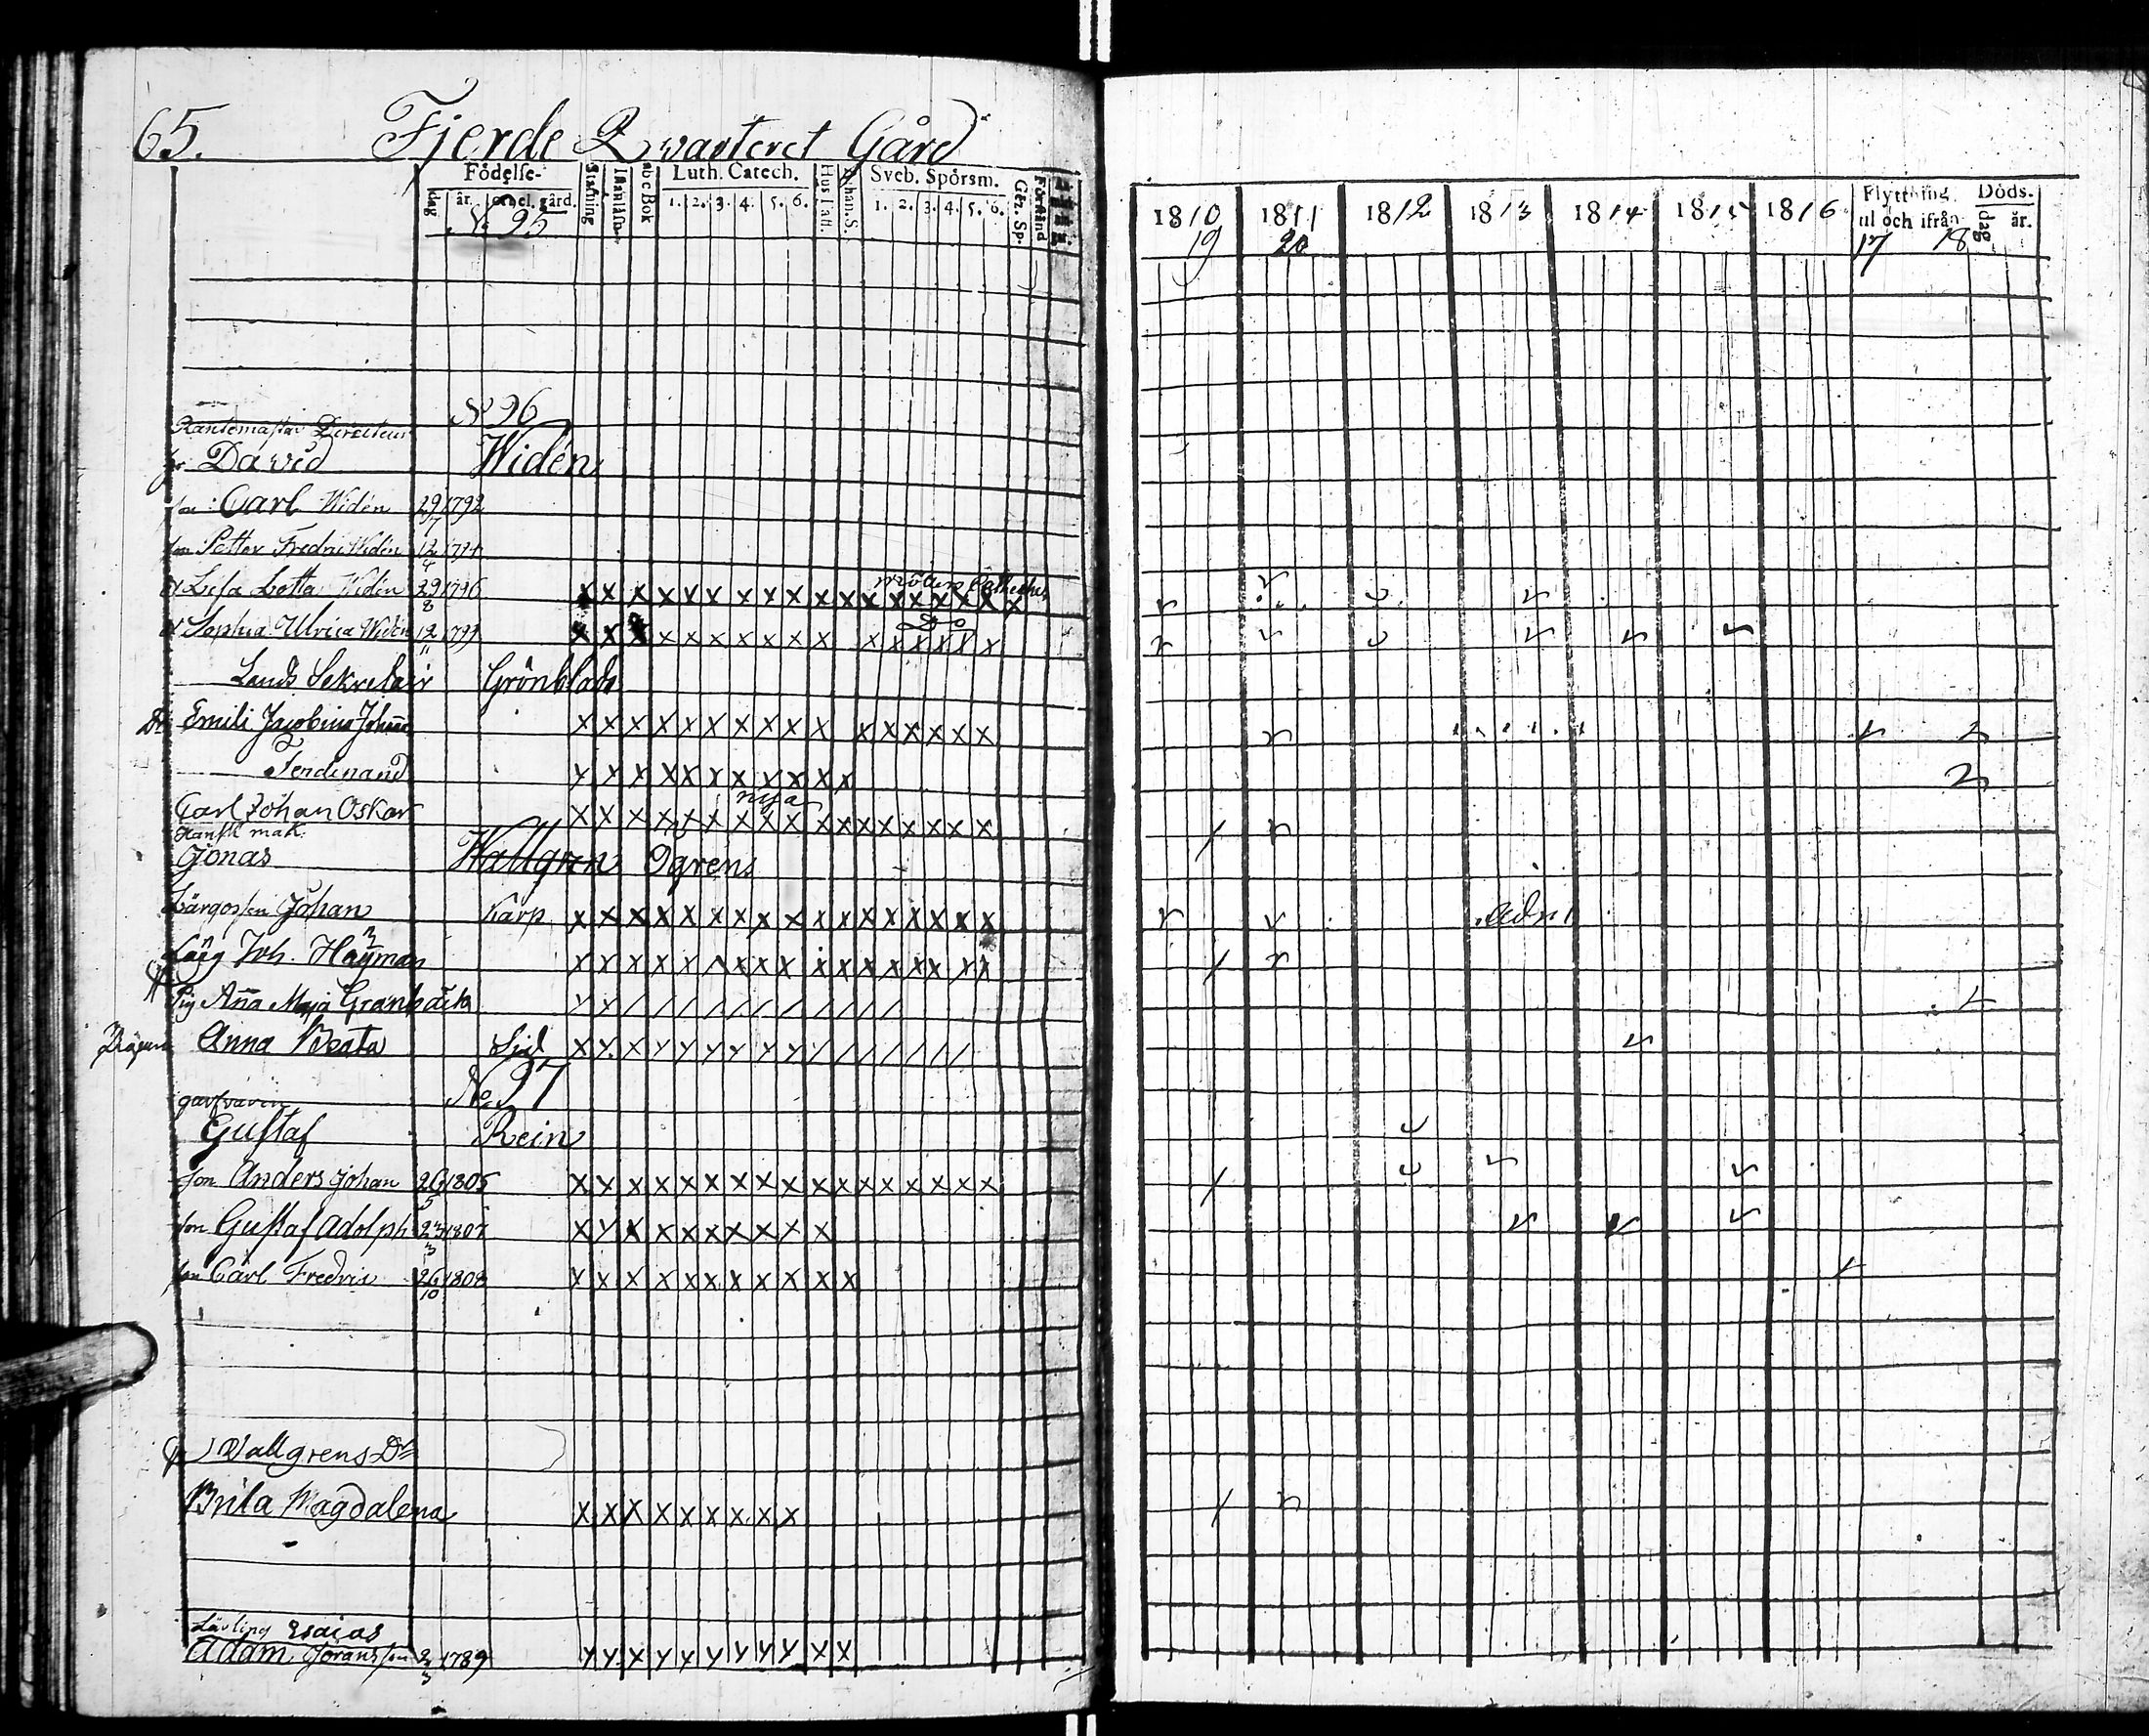 65. Fjerde Qvarteret Gård
Födelse- Stafning Innanläsn. abc Bok Luth. Catech. Hus Tafl. Athan. S. Sveb. Spörsm. Gez. Sp. Förstånd
dag år. ort el. gård. 1. 2. 3. 4. 5. 6. 1. 2. 3. 4. 5. 6.
No 95
1810 1811 1812 1813 1814 1815 1816 Flyttning Döds-
19 20 til och ifrån dag år.
17 18
No 96
Räntemästar Directeur
David Widén
son Carl Widén 29/7 1792
son Petter Fredric Widén 12/4 1794
Lisa Lotta Widén 29/8 1796 X X X X X X X X X X X X X X X X X X
Sophia Ulrica Widén 12/11 1799 Do X X X X X X X X X X X X X X X X
Lands Sekretair Grönblads
Dr Emili Jacobina Johanna X X X X X X X X X X X X X X X X
Ferdinand X X X X X X X X X X X
nya
Carl Johan Oskar X X X X X X X X X X X X X X X X X
Hansk mak.
Jonas Wallgren Ogrens
Johan Karp X X X X X X X X X X X X X X X X X
Joh. Hayman X X X X X X X X X X X X X X X X
Pig Aña Maja Granbäck
Anna Beata
No. 97
garfvaren
Gustaf Rein
son Anders Johan 26/5 1805 X X X X X X X X X X X X X X X X X
son Gustaf Adolph 23/3 1807 X X X X X X X X X X
son Carl Fredric 26/10 1808 X X X X X X X X X X X
Wallgrens Dr
Brita Magdalena X X X X X X X X X
Lärling Esaias
Adam Jöransson 2/3 1789 X X X X X X X X X X X